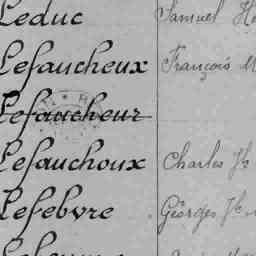 Leduc Samuel
Lefaucheux François
Lefaucheur
Lefauchoux Charles
Lefebvre Georges